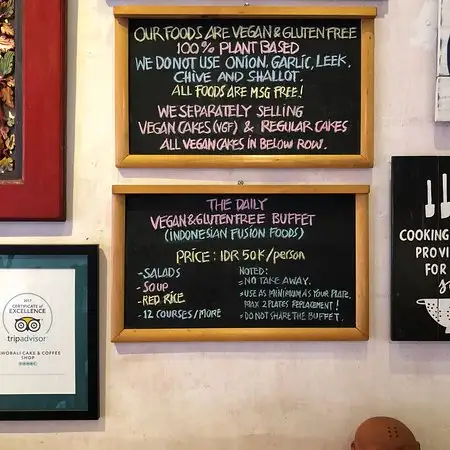 OUR FOODS ARE VEGAN & GLUTEN FREE
100% PLANT BASED
WE DO NOT USE ONION, GARLIC, LEEK,
CHIVE AND SHALLOT.
ALL FOODS ARE MSG FREE!
WE SEPARATELY SELLING
VEGAN CAKES (VGF) & REGULAR CAKES
ALL VEGAN CAKES IN BELOW ROW.
THE DAILY
VEGAN & GLUTEN FREE BUFFET
(INDONESIAN FUSION FOODS)
PRICE : IDR 50K/person
- SALADS
- SOUP
- RED RICE
- 12 COURSES/MORE
NOTED:
= NO TAKE AWAY.
= USE AS MINIMUM AS YOUR PLATE,
MAX 2 PLATES REPLACEMENT!
= DO NOT SHARE THE BUFFET.
2017
CERTIFICATE of
EXCELLENCE
tripadvisor
WOBALI CAKE & COFFEE
SHOP
COOKING
PROVI
FOR